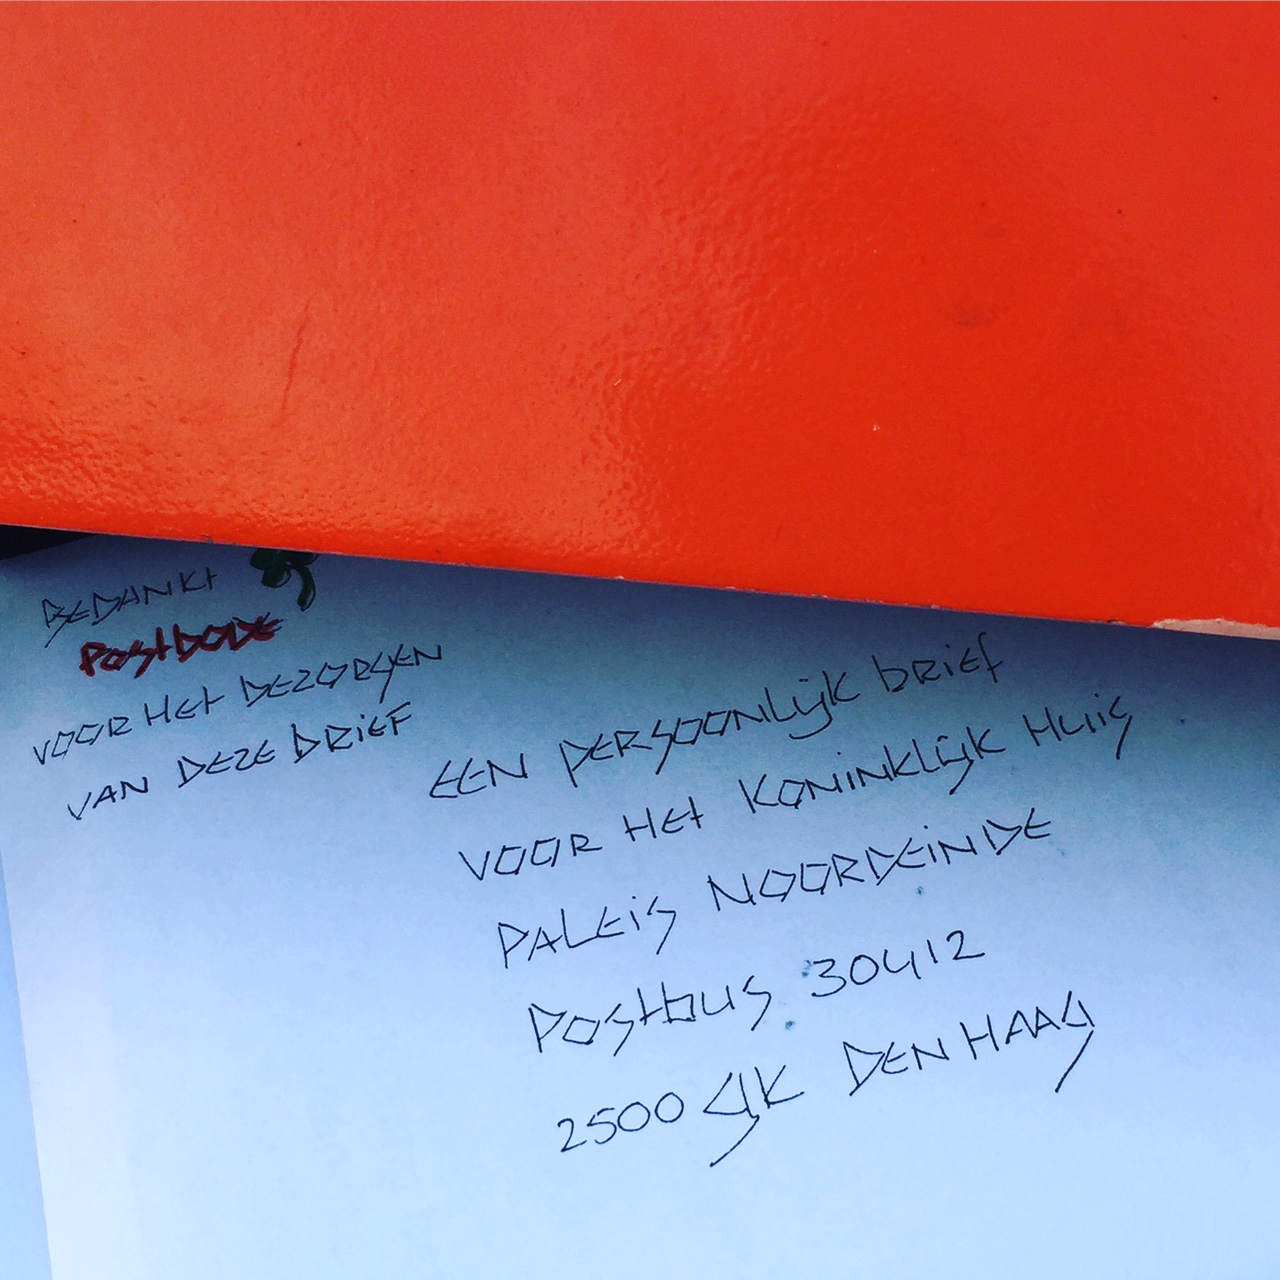 BEDANKt
PostbODE
VOOR HEt bEZORGEN
VAN DEZE bRiEF
EEN PERSOONLijk briEf
VOOR HEt KONINKLijk Huis
PALEis NOORDEiNDE
Postbus 30412
2500 GK DEN HAAG